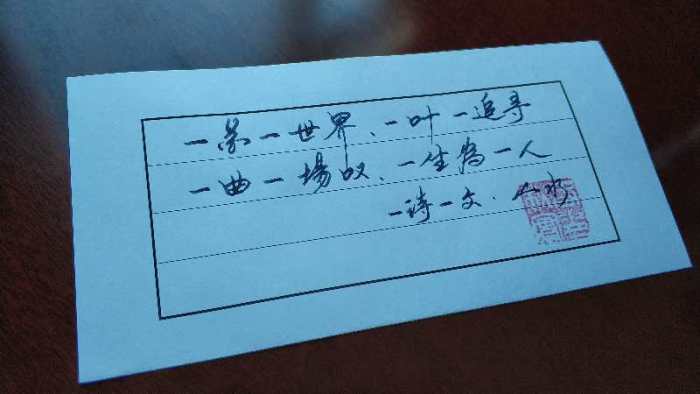 一一世界、一叶一追寻
一曲一場叹、一生為一人
一诗一文.